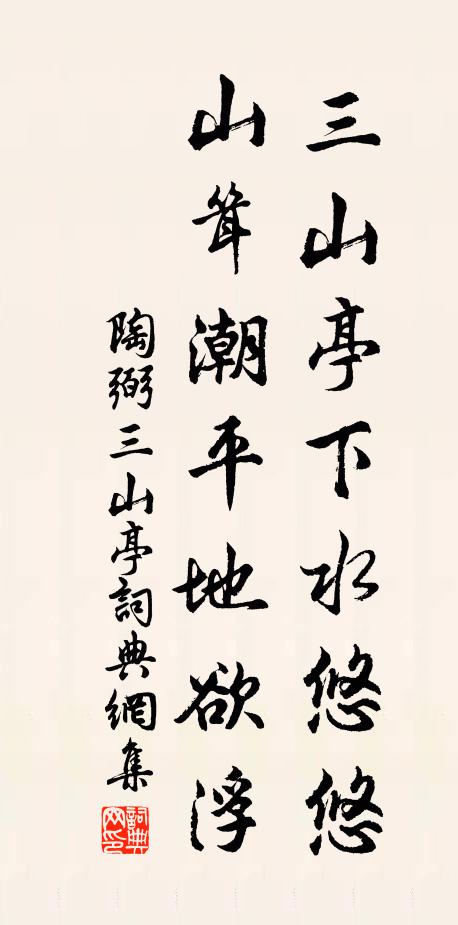 三山亭下水悠悠
山耸潮平地欲浮
陶弼三山亭詞典網集
詞典网印